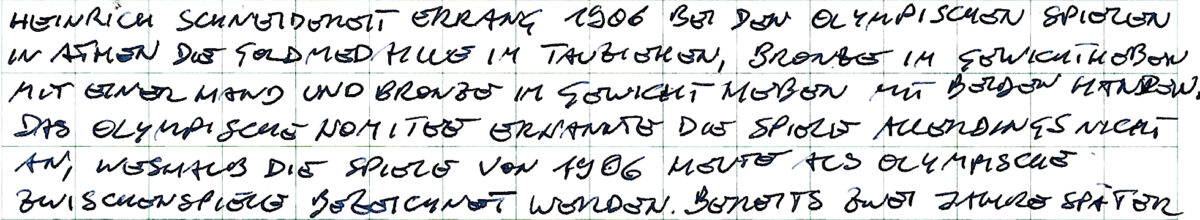 HEINRICH SCHNEIDEREIT ERRANG 1906 BEI DEN OLYMPISCHEN SPIELEN
IN ATHEN DIE GOLDMEDAILLE IM TAUZIEHEN, BRONZE IM GEWICHTHEBEN
MIT EINER HAND UND BRONZE IM GEWICHTHEBEN MIT BEIDEN HÄNDEN.
DAS OLYMPISCHE KOMITEE ERKANNTE DIE SPIELE ALLERDINGS NICHT
AN, WESHALB DIE SPIELE VON 1906 HEUTE ALS OLYMPISCHE
ZWISCHENSPIELE BEZEICHNET WERDEN. BEREITS ZWEI JAHRE SPÄTER